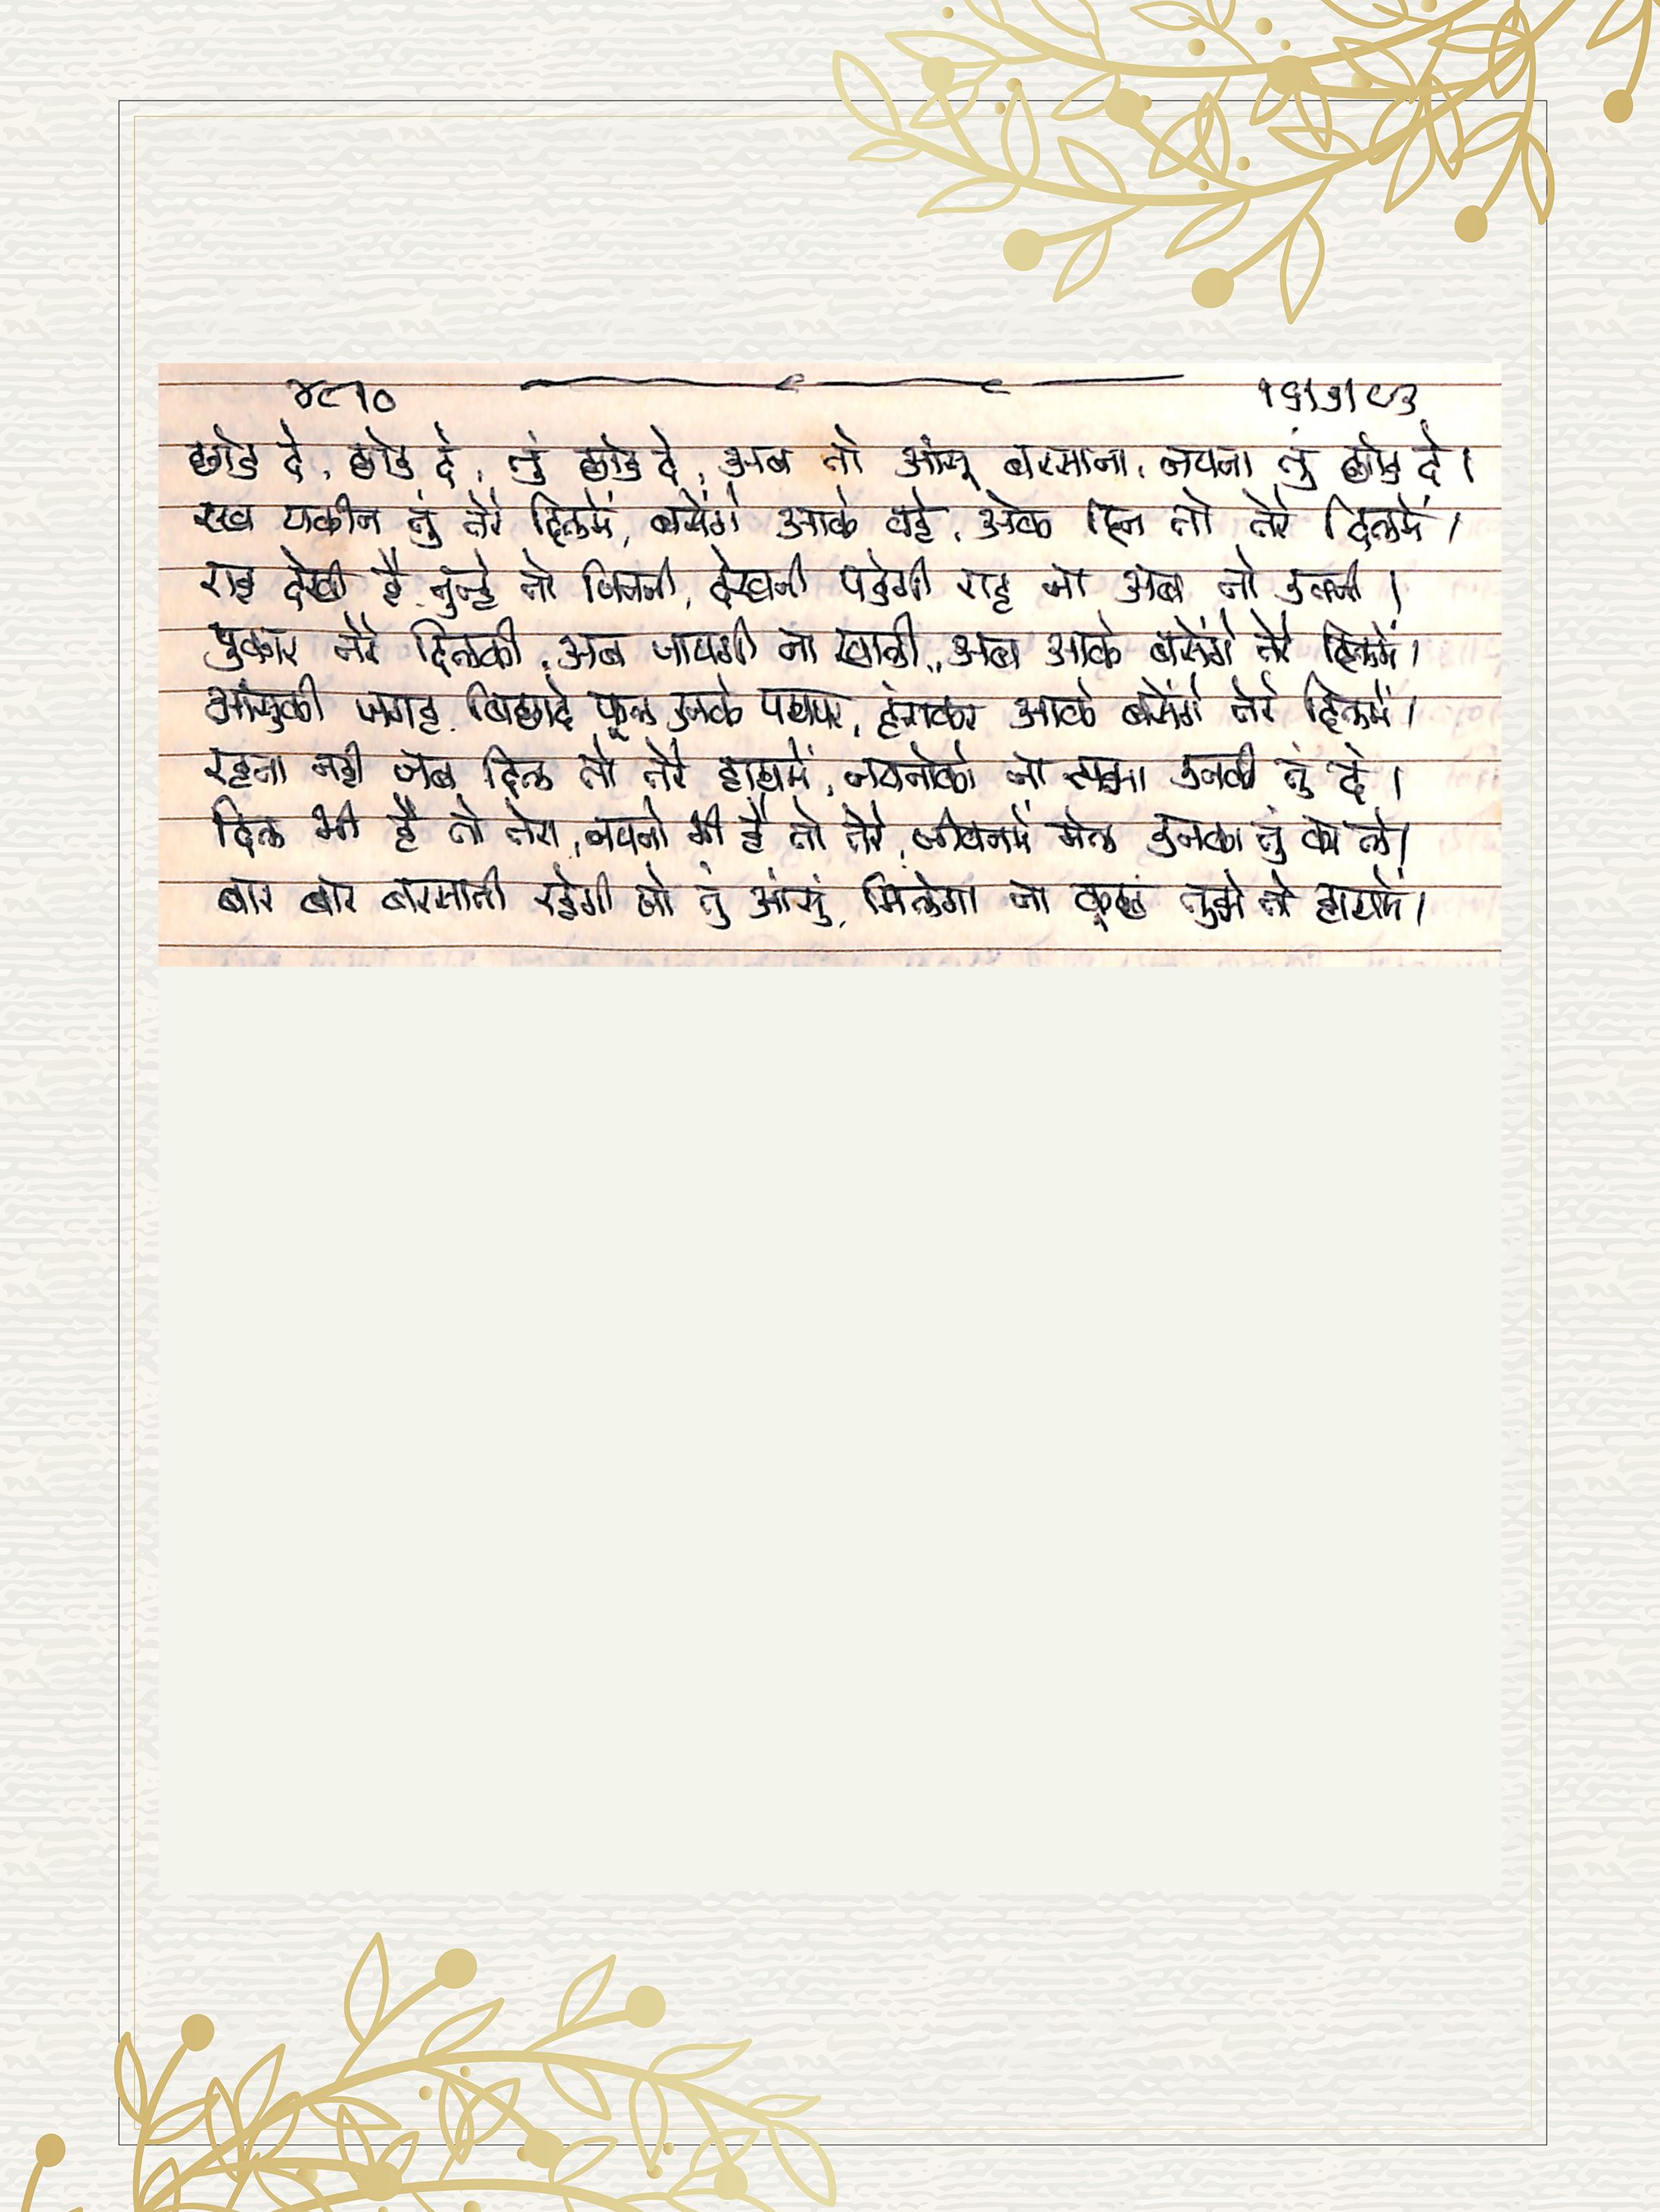 ४८१० १६/७/९३
छोड दे, छोड दे, तुं छोड दे, अब तो आंसू बरसाना, नयना तुं छोड दे।
रख यकीन तुं तेरे दिलमें, बसेंगे आके वहे, अेक दिन तो तेरे दिलमें।
राह देखी है तुन्हे तो जितनी, देखनी पडेगी राह ना अब तो उतनी।
पुकार तेरे दिलकी, अब जायगी ना खाली, अब आके बसेंगे तेरे दिलमें।
आंसुकी जगह बिछादे फूल उनके पथपर, हंसकर आके बसेंगे तेरे दिलमें।
रहता नही जब दिल तो तेरे हाथमें, नयनोको ना सझा उनकी तुं दे।
दिल भी है तो तेरा, नयनो भी है तो तेरे, जीवनमें मेल उनका तुं कर ले।
बार बार बरसाती रहेगी जो तुं आंसुं, मिलेगा ना कूछ तुझे तो हाथमें।